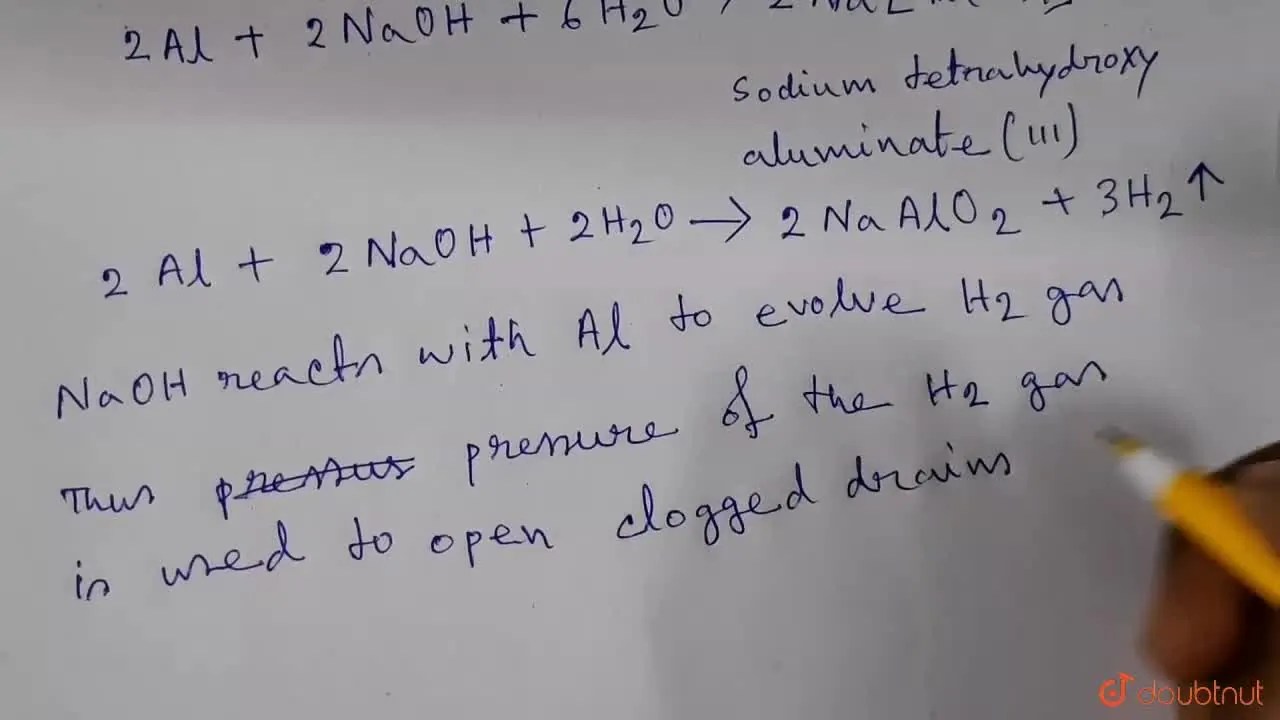 2Al + 2NaOH + 6H2O
sodium tetrahydroxy
aluminate (III)
2 Al + 2 NaOH + 2H2O → 2 NaAlO2 + 3H2↑
NaOH reacts with Al to evolve H2 gas
Thus pressure of the H2 gas
is used to open clogged drains
doubtnut